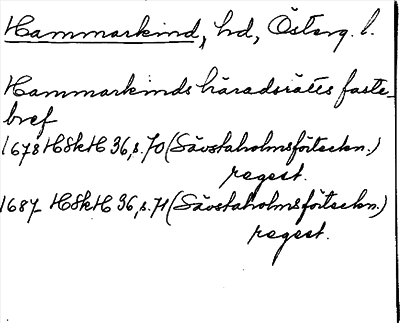 Hammarkind, hd, Österg. l.
Hammarkinds häradsrätts faste-
bref
1678 HSkH 36, s. 70 (Sävstaholmsförteckn.)
regest.
1687 HSkH 36, s. 71 (Sävstaholmsförteckn.)
regest.